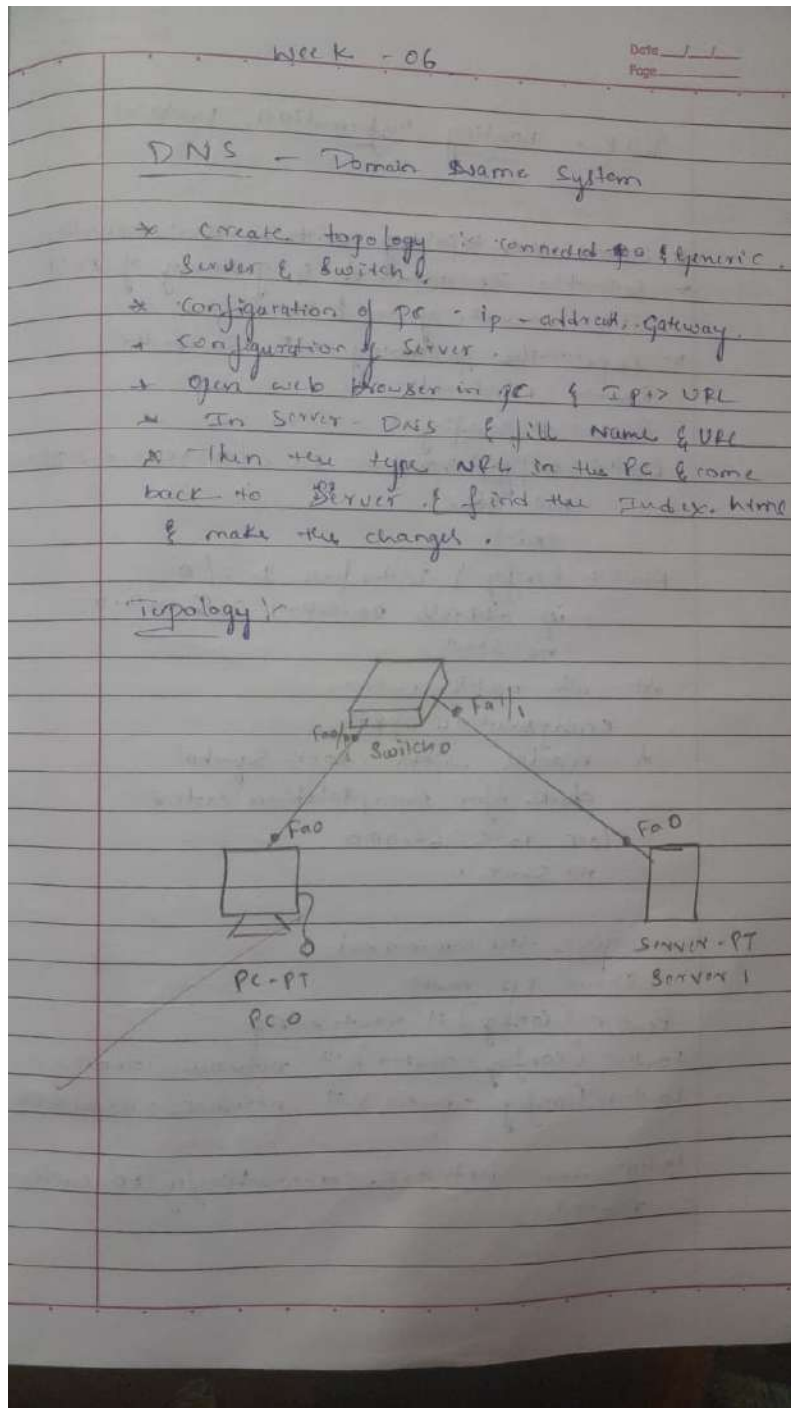 Week - 06
Date __/__/__
Page
DNS - Domain Name System
* Create topology is connected generic
Server & Switch
* Configuration of PC - ip - address, Gateway.
* Configuration of Server.
* Open web browser in PC & IP -> URL
* In Server - DNS & fill Name & URL
* Then the type URL in the PC & come
back to Server & find the Index.
& make the changes.
Topology :-
Fa1/1
Fa0/
Switch0
Fa0
Fa0
Server-PT
PC-PT
Server 1
PC0